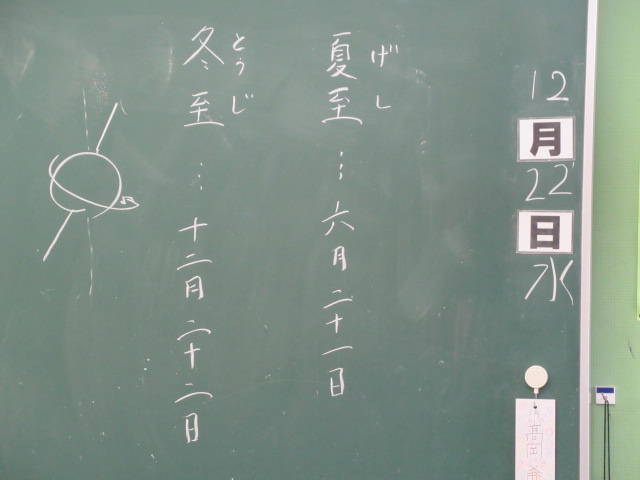 12
月
22
日
水
げし
夏至…六月二十一日
とうじ
冬至…十二月二十二日